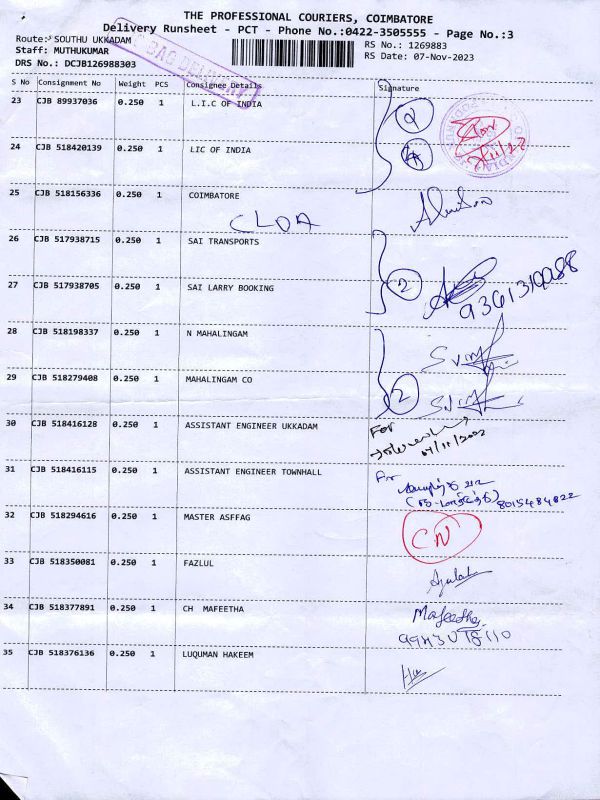 THE PROFESSIONAL COURIERS, COIMBATORE
Delivery Runsheet - PCT - Phone No.:0422-3505555 - Page No.:3
Route: SOUTHU UKKADAM
RS No.: 1269883
Staff: MUTHUKUMAR
RS Date: 07-Nov-2023
DRS No.: DCJB126988303
BAG DELIVERY
S No Consignment No Weight PCS Consignee Details Signature
23 CJB 89937036 0.250 1 L.I.C OF INDIA
2
24 CJB 518420139 0.250 1 LIC OF INDIA
25 CJB 518156336 0.250 1 COIMBATORE
CLOA
26 CJB 517938715 0.250 1 SAI TRANSPORTS
27 CJB 517938705 0.250 1 SAI LARRY BOOKING
2
28 CJB 518198337 0.250 1 N MAHALINGAM
29 CJB 518279408 0.250 1 MAHALINGAM CO
2
30 CJB 518416128 0.250 1 ASSISTANT ENGINEER UKKADAM
For
31 CJB 518416115 0.250 1 ASSISTANT ENGINEER TOWNHALL
For
8015484822
32 CJB 518294616 0.250 1 MASTER ASFFAG
CN
33 CJB 518350081 0.250 1 FAZLUL
34 CJB 518377891 0.250 1 CH MAFEETHA
Mafeetha
35 CJB 518376136 0.250 1 LUQUMAN HAKEEM